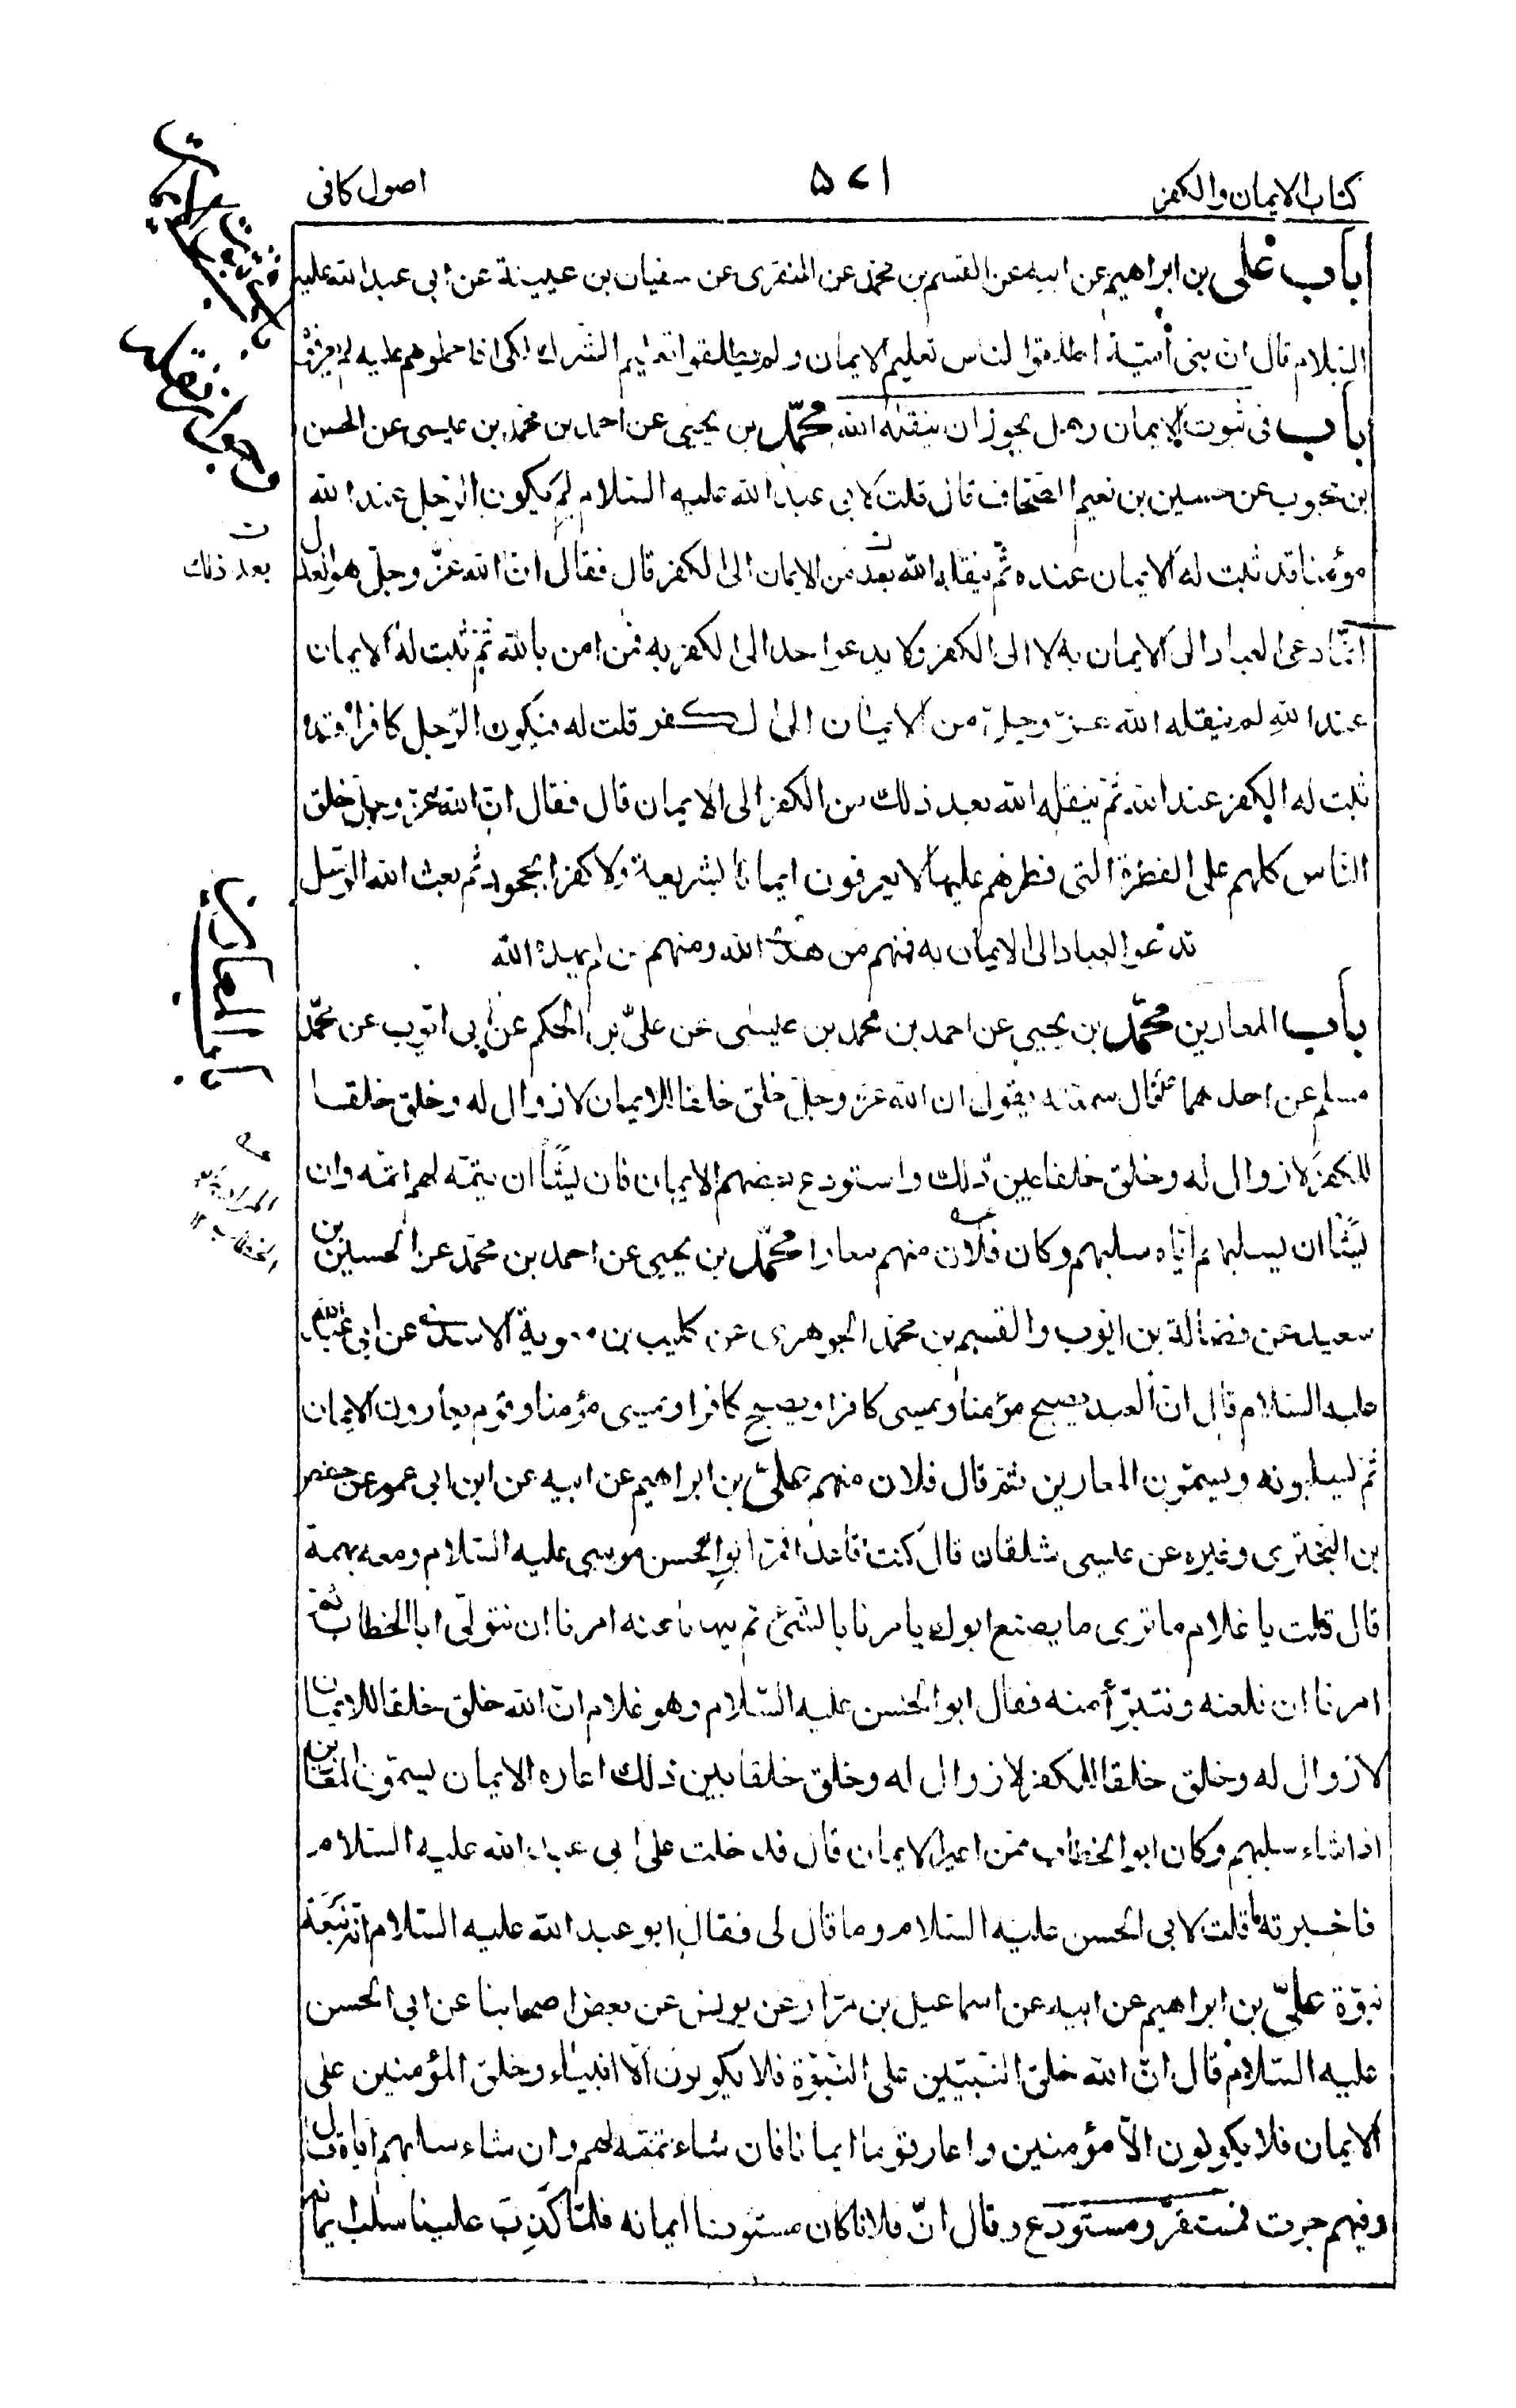 كتاب الايمان والكفر
۵۷۱
اصول كافى
باب على بن ابراهيم عن ابيه عن القسم بن محمد عن المنقرى عن سفيان بن عيينة عن ابى عبد الله عليه
السلام قال ان بنى أميّة اطلقوا للناس تعليم الايمان ولم يطلقوا تعليم الشرك لكى اذا حملوهم عليه لم يعرفوه
باب فى ثبوت الايمان وهل يجوز ان ينقله الله محمّد بن يحيى عن احمد بن محمد بن عيسى عن الحسن
بن محبوب عن حسين بن نعيم الصحّاف قال قلت لابى عبد الله عليه السلام لِمَ يكون الرّجل عند الله
مؤمنا قد ثبت له الايمان عنده ثمّ ينقله الله بعد من الايمان الى الكفر قال فقال انّ الله عزّ وجلّ هو العدل
انّما دعى العباد الى الايمان به لا الى الكفر ولا يدعو احدا الى الكفر به فمن امن بالله ثمّ ثبت له الايمان
عند الله لم ينقله الله عزّ وجلّ من الايمان الى الكفر قلت له فيكون الرّجل كافرا قد
ثبت له الكفر عند الله ثمّ ينقله الله بعد ذلك من الكفر الى الايمان قال فقال انّ الله عزّ وجلّ خلق
الناس كلهم على الفطرة التى فطرهم عليها لا يعرفون ايمانا بشريعة ولا كفرا بجحود ثم بعث الله الرّسل
تدعوا العباد الى الايمان به فمنهم من هدى الله ومنهم من لم يهده الله
باب المعارين محمّد بن يحيى عن احمد بن محمد بن عيسى عن علىّ بن الحكم عن ابى ايّوب عن محمّد
مسلم عن احدهما ع قال سمعته يقول ان الله عزّ وجلّ خلق خلقا للايمان لا زوال له وخلق خلقا
للكفر لا زوال له وخلق خلقا بين ذلك واستودع بعضهم الايمان فان يشأ ان يتمّه لهم اتمّه وان
يشأ ان يسلبهم ايّاه سلبهم وكان فلان منهم معارا محمّد بن يحيى عن احمد بن محمّد عن الحسين بن
سعيد عن فضالة بن ايّوب والقسم بن محمّد الجوهرى عن كليب بن معوية الاسدى عن ابى عبد الله
عليه السلام قال انّ العبد يصبح مؤمنا ويمسى كافرا ويصبح كافرا ويمسى مؤمنا وقوم يعارون الايمان
ثمّ يسلبونه ويسمّون المعارين ثمّ قال فلان منهم علىّ بن ابراهيم عن ابيه عن ابن ابى عمير عن حفص
بن البخترى وغيره عن عيسى شلقان قال كنت قاعدا فمرّ ابو الحسن موسى عليه السلام ومعه بهمة
قال قلت يا غلام ما ترى ما يصنع ابوك يامرنا بالشئ ثم ينهانا عنه امرنا ان نتولّى ابا الخطاب ثمّ
امرنا ان نلعنه ونتبرّأ منه فقال ابو الحسن عليه السّلام وهو غلام انّ الله خلق خلقا للايمان
لا زوال له وخلق خلقا للكفر لا زوال له وخلق خلقا بين ذلك اعاره الايمان يسمّون المعارين
اذا شاء سلبهم وكان ابو الخطاب ممّن اعير الايمان قال فدخلت على ابى عبد الله عليه السلام
فاخبرته ما قلت لابى الحسن عليه السلام وما قال لى فقال ابو عبد الله عليه السلام انّه نبعة
نبوّة علىّ بن ابراهيم عن ابيه عن اسماعيل بن مرّار عن يونس عن بعض اصحابنا عن ابى الحسن
عليه السّلام قال انّ الله خلق النّبيّين على النّبوّة فلا يكونون الّا انبياء وخلق المؤمنين على
الايمان فلا يكونون الّا مؤمنين واعار قوما ايمانا فان شاء تمّمه لهم وان شاء سلبهم ايّاه قال
وفيهم جرت فمستقرّ ومستودع وقال انّ فلانا كان مستودعا ايمانه فلمّا كَذَبَ علينا سلب ايمانه
بعد ذلك
باب المعارين